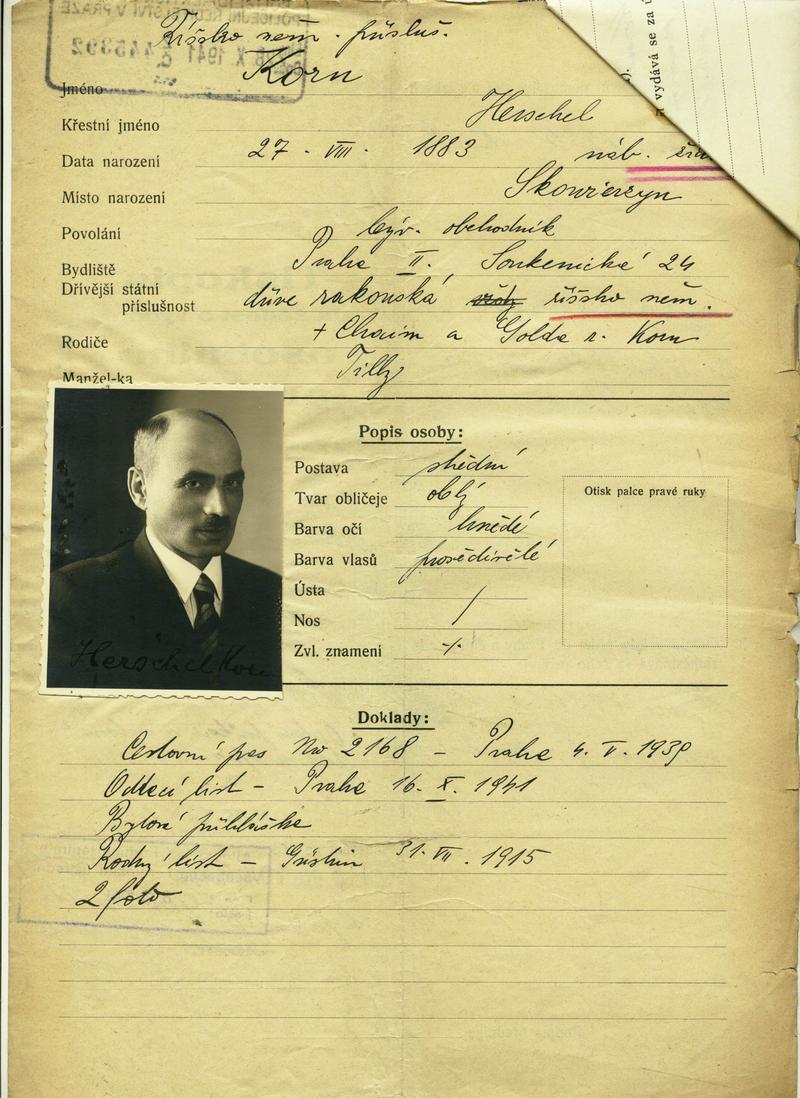 Říšsko něm. přísluš.
Jméno Korn
Křestní jméno Herschel
Data narození 27. VIII. 1883 náb.
Místo narození
Povolání býv. obchodník
Bydliště Praha II. Soukenická 24
Dřívější státní
příslušnost dříve rakouská, říšsko něm.
Rodiče + Chaim a Golda r. Korn
Manžel-ka Tilly
m vydává se za ú
Popis osoby:
Postava střední
Tvar obličeje oblý
Barva očí hnědé
Barva vlasů prošedivělé
Ústa /
Nos /
Zvl. znamení -/-
Otisk palce pravé ruky
Herschel Korn
Doklady:
Cestovní pas No 2168 – Praha 4. V. 1939
Oddací list – Praha 16. X. 1941
Bytová přihláška
Rodný list – 31. VII. 1915
2 foto